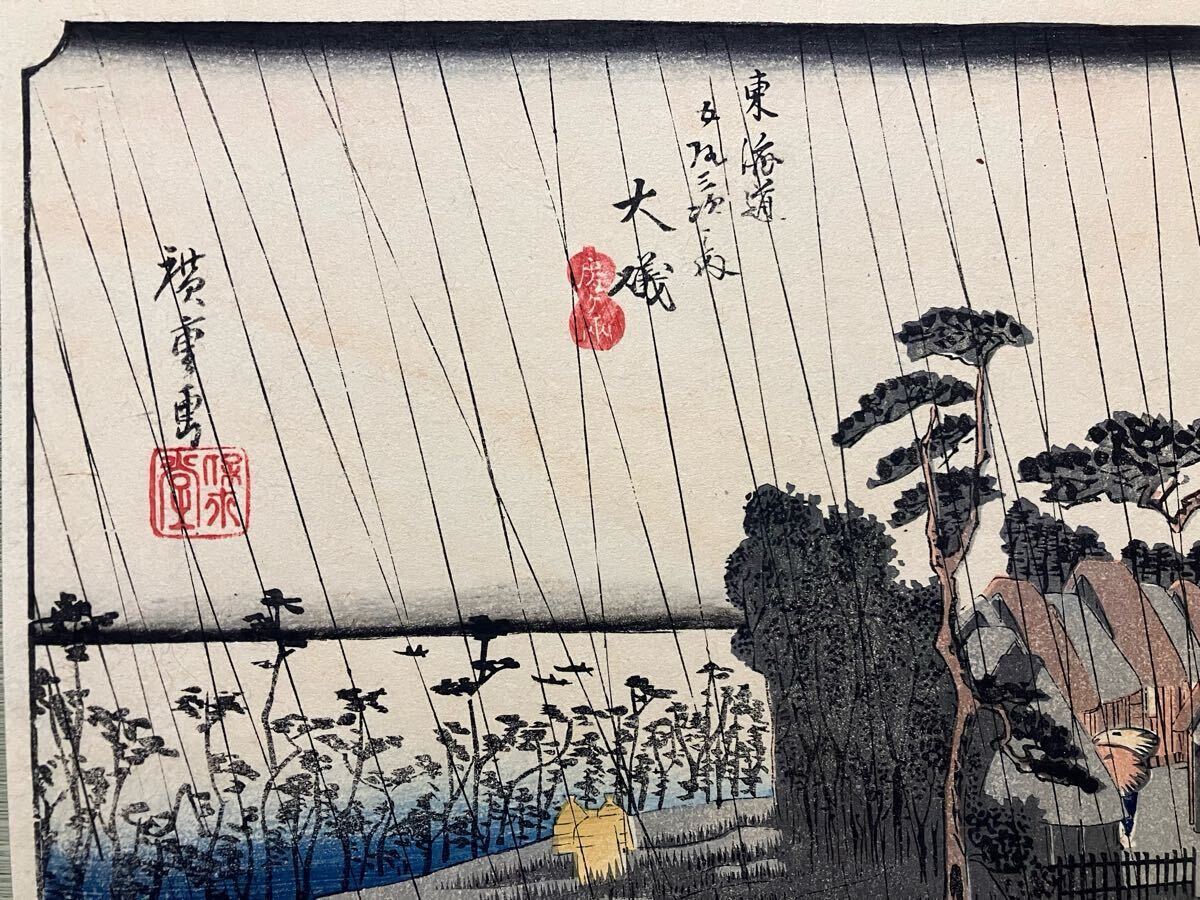 東海道
五拾三次之内
大磯
虎ヶ雨
廣重画
保永堂